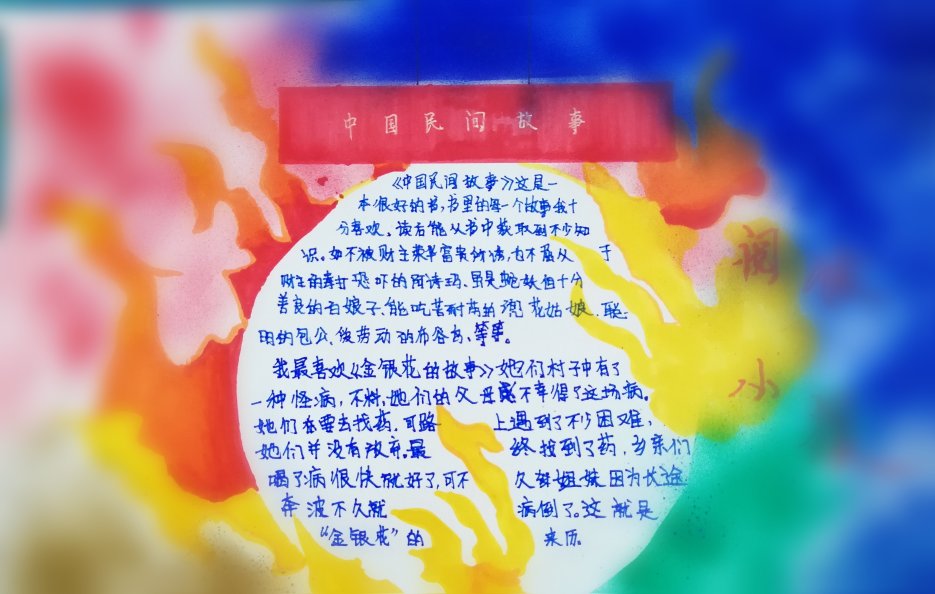 中国民间故事
《中国民间故事》这是一
本很好的书,书里的每一个故事我十
分喜欢。读者能从书中获取到不少知
识。如不被财主荣华富贵所诱,也不屈从 于
财主的毒打恐吓的阿诗玛、虽是蛇妖但十分
善良的白娘子、能吃苦耐劳的 花姑娘、聪
明的包公、爱劳动的布谷鸟、等等。
我最喜欢《金银花的故事》她们村子中有了
一种怪病,不料,她们的父母 不幸得了这场病。
她们 要去找药,可路 上遇到了不少困难,
她们并没有放弃。最 终找到了药,乡亲们
喝了病很快就好了,可不 久 姐妹因为长途
奔波不久就 病倒了。这就是
“金银花”的 来历。
阅
小